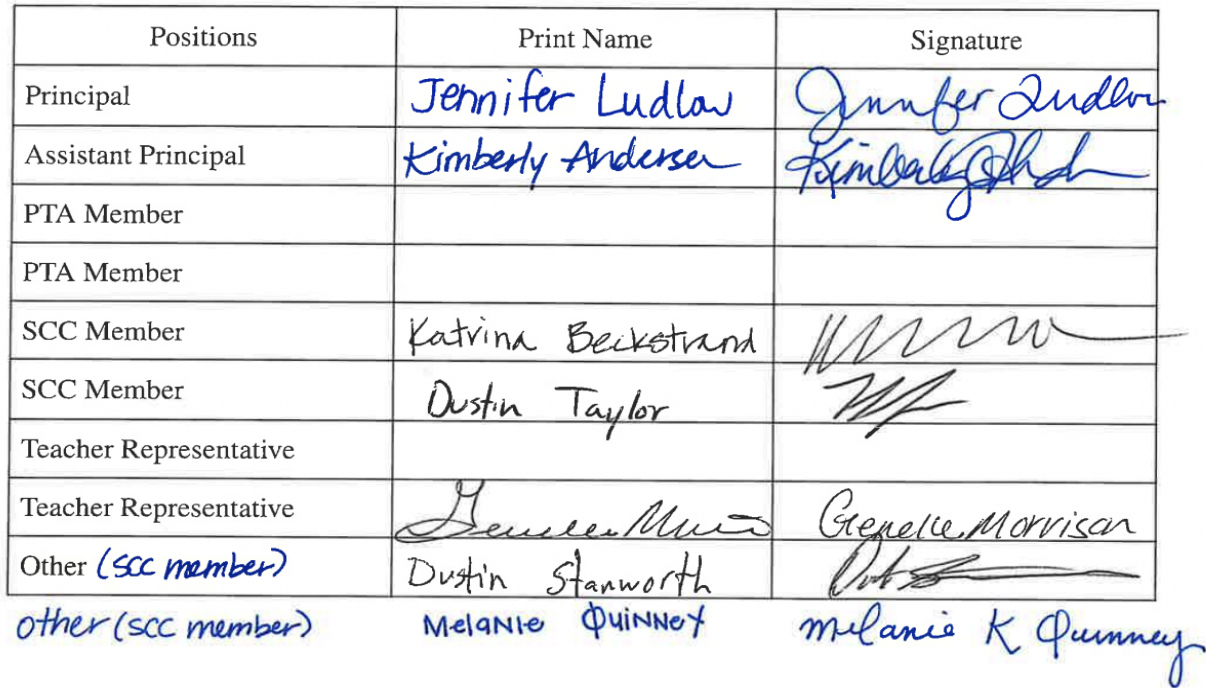 Positions Print Name Signature
Principal Jennifer Ludlow Jennifer Ludlow
Assistant Principal Kimberly Andersen Kimberly
PTA Member
PTA Member
SCC Member Katrina Beckstrand
SCC Member Dustin Taylor
Teacher Representative
Teacher Representative Genelle Morrison
Other (SCC member) Dustin Stanworth
other (SCC member) Melanie Quinney Melanie K Quinney